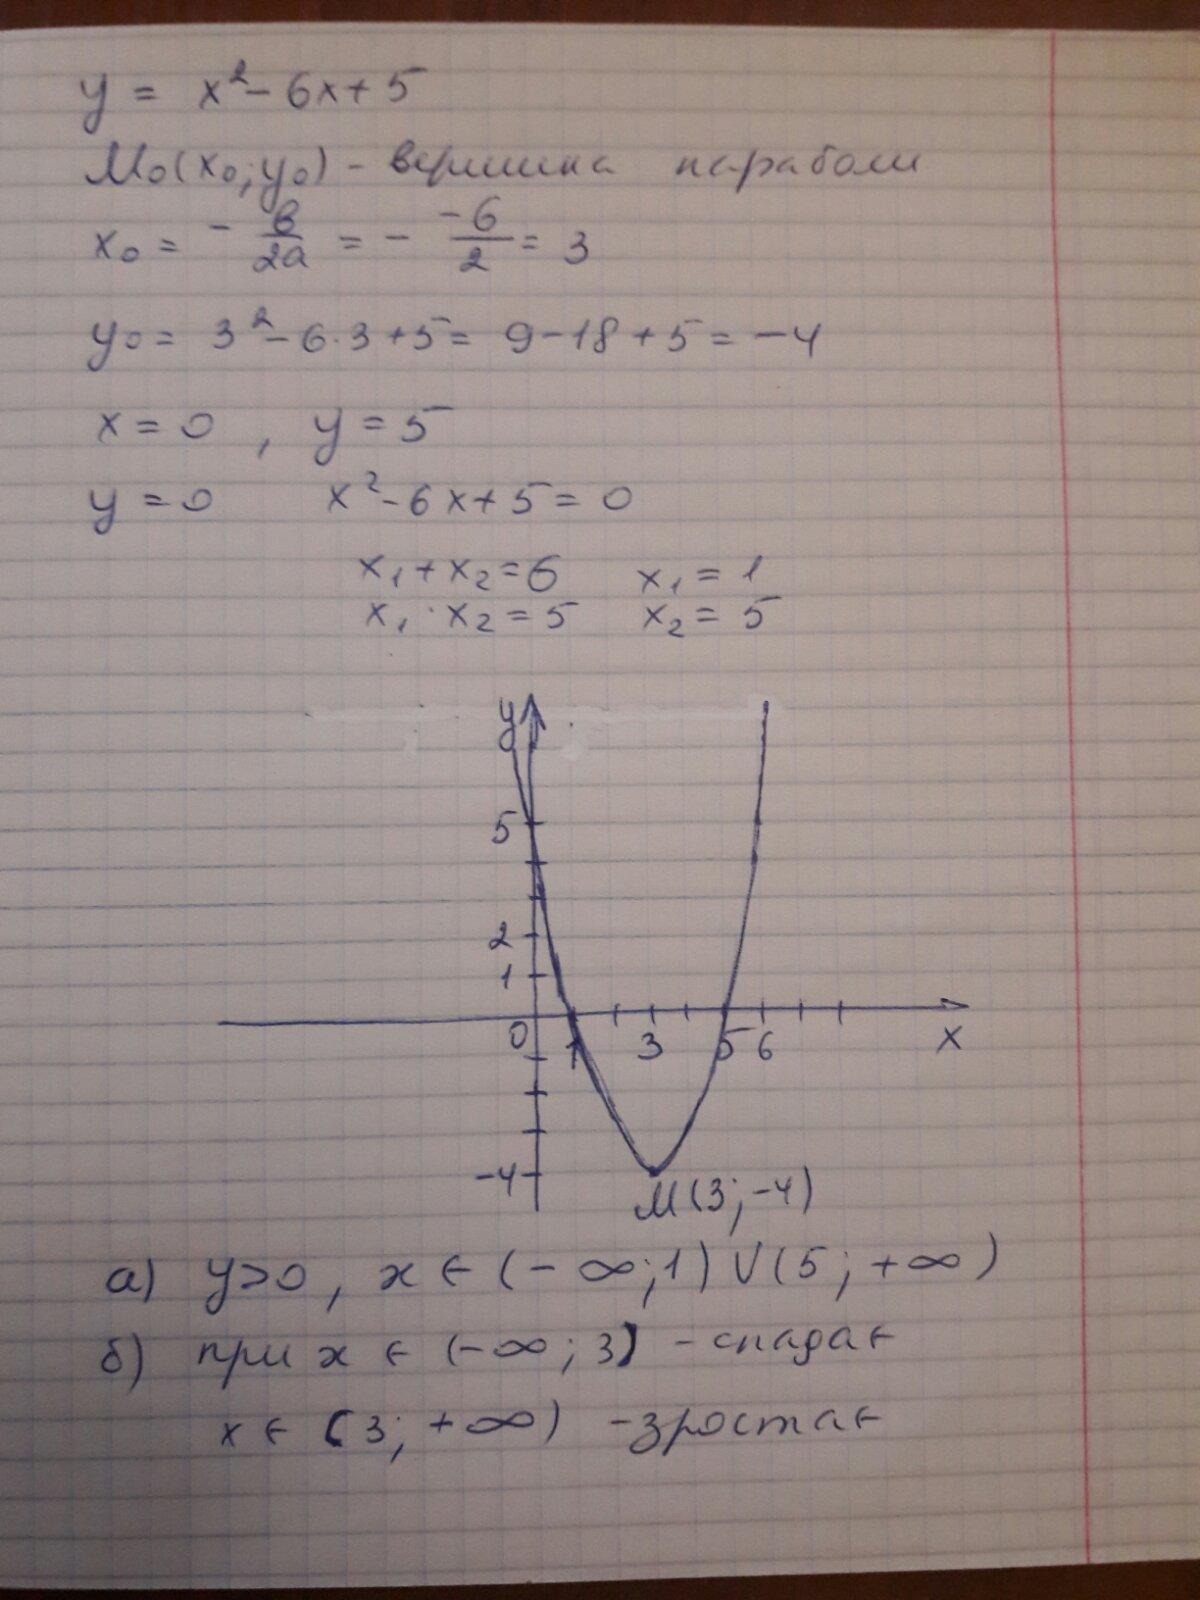 y = x² - 6x + 5
M₀(x₀; y₀) - вершина параболи
x₀ = - в/2a = - -6/2 = 3
y₀ = 3² - 6·3 + 5 = 9 - 18 + 5 = -4
x = 0 , y = 5
y = 0 x² - 6x + 5 = 0
x₁ + x₂ = 6 x₁ = 1
x₁ · x₂ = 5 x₂ = 5
y
5
2
1
0 1 3 5 6 x
-4
M(3; -4)
а) y>0, x ∈ (-∞; 1) ∪ (5; +∞)
б) при x ∈ (-∞; 3) - спадає
x ∈ (3; +∞) - зростає